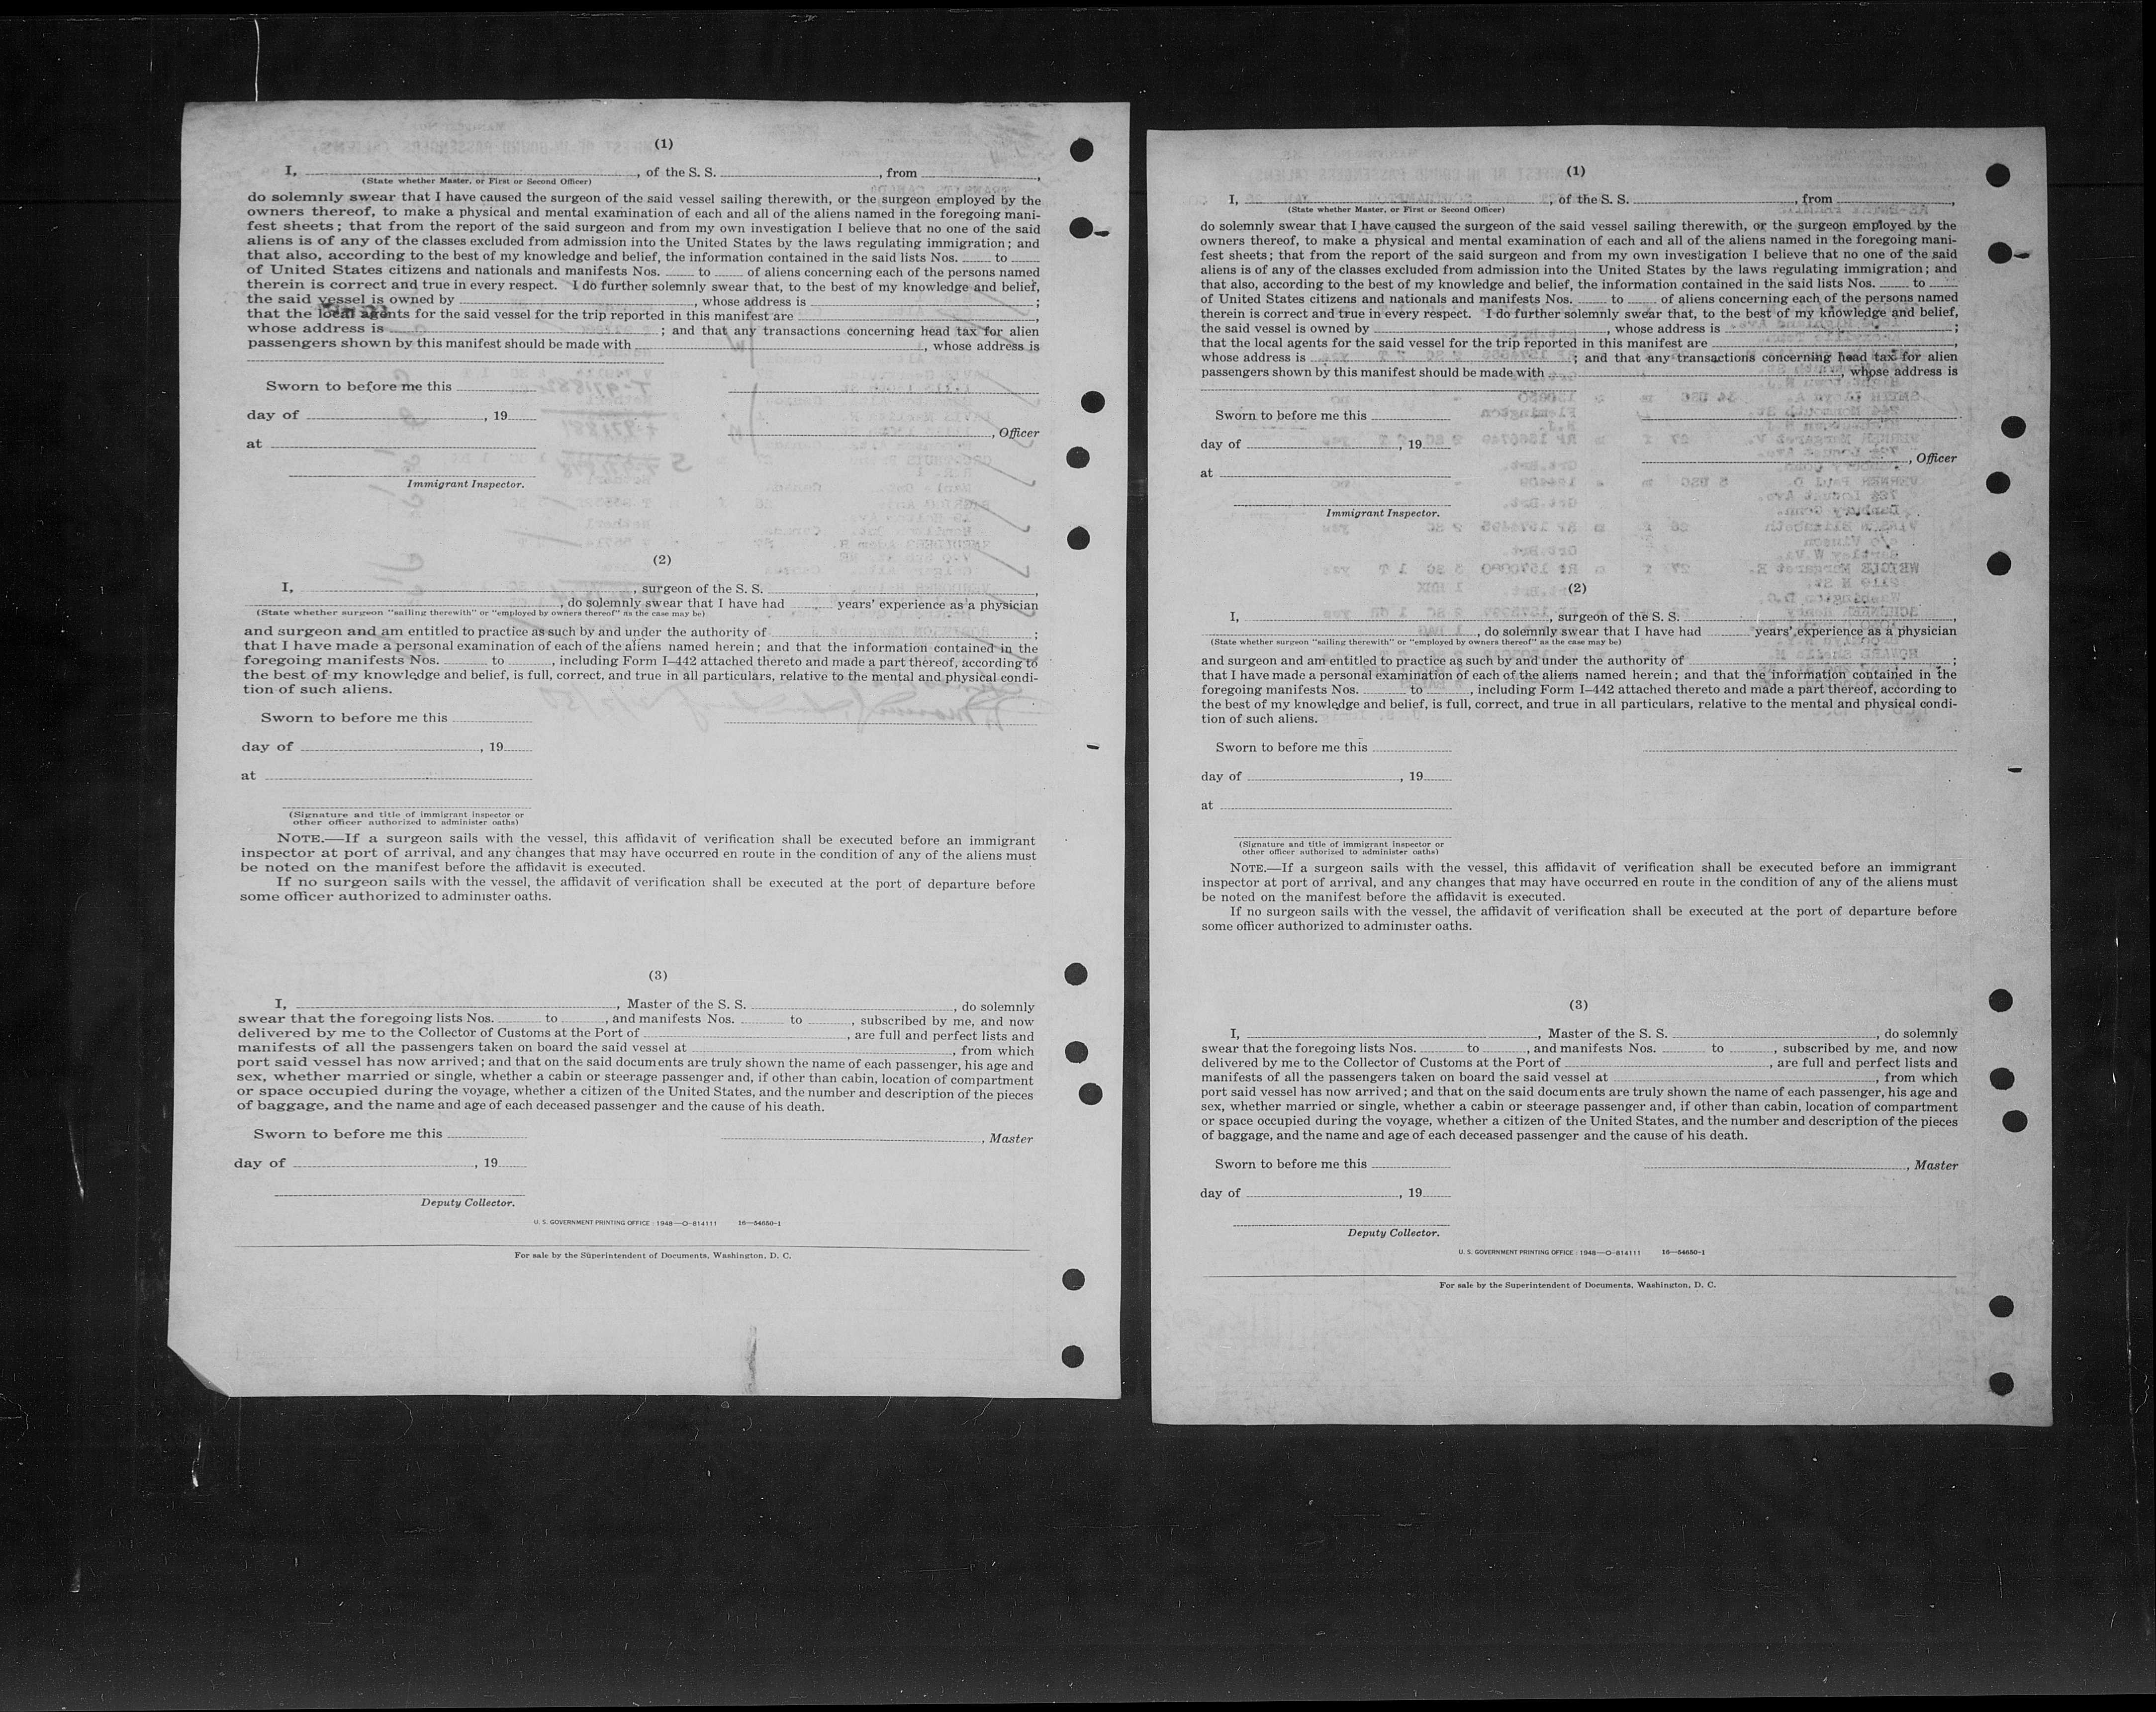 (1)
I, , of the S. S. , from ,
(State whether Master, or First or Second Officer)
do solemnly swear that I have caused the surgeon of the said vessel sailing therewith, or the surgeon employed by the
owners thereof, to make a physical and mental examination of each and all of the aliens named in the foregoing mani-
fest sheets; that from the report of the said surgeon and from my own investigation I believe that no one of the said
aliens is of any of the classes excluded from admission into the United States by the laws regulating immigration; and
that also, according to the best of my knowledge and belief, the information contained in the said lists Nos. to
of United States citizens and nationals and manifests Nos. to of aliens concerning each of the persons named
therein is correct and true in every respect. I do further solemnly swear that, to the best of my knowledge and belief,
the said vessel is owned by , whose address is ;
that the local agents for the said vessel for the trip reported in this manifest are ,
whose address is ; and that any transactions concerning head tax for alien
passengers shown by this manifest should be made with , whose address is
Sworn to before me this
day of , 19
, Officer
at
Immigrant Inspector.
(2)
I, , surgeon of the S. S. ,
, do solemnly swear that I have had years' experience as a physician
(State whether surgeon "sailing therewith" or "employed by owners thereof" as the case may be)
and surgeon and am entitled to practice as such by and under the authority of ;
that I have made a personal examination of each of the aliens named herein; and that the information contained in the
foregoing manifests Nos. to , including Form I-442 attached thereto and made a part thereof, according to
the best of my knowledge and belief, is full, correct, and true in all particulars, relative to the mental and physical condi-
tion of such aliens.
Sworn to before me this
day of , 19
at
(Signature and title of immigrant inspector or
other officer authorized to administer oaths)
NOTE.—If a surgeon sails with the vessel, this affidavit of verification shall be executed before an immigrant
inspector at port of arrival, and any changes that may have occurred en route in the condition of any of the aliens must
be noted on the manifest before the affidavit is executed.
If no surgeon sails with the vessel, the affidavit of verification shall be executed at the port of departure before
some officer authorized to administer oaths.
(3)
I, , Master of the S. S. , do solemnly
swear that the foregoing lists Nos. to , and manifests Nos. to , subscribed by me, and now
delivered by me to the Collector of Customs at the Port of , are full and perfect lists and
manifests of all the passengers taken on board the said vessel at , from which
port said vessel has now arrived; and that on the said documents are truly shown the name of each passenger, his age and
sex, whether married or single, whether a cabin or steerage passenger and, if other than cabin, location of compartment
or space occupied during the voyage, whether a citizen of the United States, and the number and description of the pieces
of baggage, and the name and age of each deceased passenger and the cause of his death.
Sworn to before me this
, Master
day of , 19
Deputy Collector.
U. S. GOVERNMENT PRINTING OFFICE : 1948—O-814111 16—54650-1
For sale by the Superintendent of Documents, Washington, D. C.
(1)
I, , of the S. S. , from ,
(State whether Master, or First or Second Officer)
do solemnly swear that I have caused the surgeon of the said vessel sailing therewith, or the surgeon employed by the
owners thereof, to make a physical and mental examination of each and all of the aliens named in the foregoing mani-
fest sheets; that from the report of the said surgeon and from my own investigation I believe that no one of the said
aliens is of any of the classes excluded from admission into the United States by the laws regulating immigration; and
that also, according to the best of my knowledge and belief, the information contained in the said lists Nos. to
of United States citizens and nationals and manifests Nos. to of aliens concerning each of the persons named
therein is correct and true in every respect. I do further solemnly swear that, to the best of my knowledge and belief,
the said vessel is owned by , whose address is ;
that the local agents for the said vessel for the trip reported in this manifest are ,
whose address is ; and that any transactions concerning head tax for alien
passengers shown by this manifest should be made with , whose address is
Sworn to before me this
day of , 19
, Officer
at
Immigrant Inspector.
(2)
I, , surgeon of the S. S. ,
, do solemnly swear that I have had years' experience as a physician
(State whether surgeon "sailing therewith" or "employed by owners thereof" as the case may be)
and surgeon and am entitled to practice as such by and under the authority of ;
that I have made a personal examination of each of the aliens named herein; and that the information contained in the
foregoing manifests Nos. to , including Form I-442 attached thereto and made a part thereof, according to
the best of my knowledge and belief, is full, correct, and true in all particulars, relative to the mental and physical condi-
tion of such aliens.
Sworn to before me this
day of , 19
at
(Signature and title of immigrant inspector or
other officer authorized to administer oaths)
NOTE.—If a surgeon sails with the vessel, this affidavit of verification shall be executed before an immigrant
inspector at port of arrival, and any changes that may have occurred en route in the condition of any of the aliens must
be noted on the manifest before the affidavit is executed.
If no surgeon sails with the vessel, the affidavit of verification shall be executed at the port of departure before
some officer authorized to administer oaths.
(3)
I, , Master of the S. S. , do solemnly
swear that the foregoing lists Nos. to , and manifests Nos. to , subscribed by me, and now
delivered by me to the Collector of Customs at the Port of , are full and perfect lists and
manifests of all the passengers taken on board the said vessel at , from which
port said vessel has now arrived; and that on the said documents are truly shown the name of each passenger, his age and
sex, whether married or single, whether a cabin or steerage passenger and, if other than cabin, location of compartment
or space occupied during the voyage, whether a citizen of the United States, and the number and description of the pieces
of baggage, and the name and age of each deceased passenger and the cause of his death.
Sworn to before me this
, Master
day of , 19
Deputy Collector.
U. S. GOVERNMENT PRINTING OFFICE : 1948—O-814111 16—54650-1
For sale by the Superintendent of Documents, Washington, D. C.